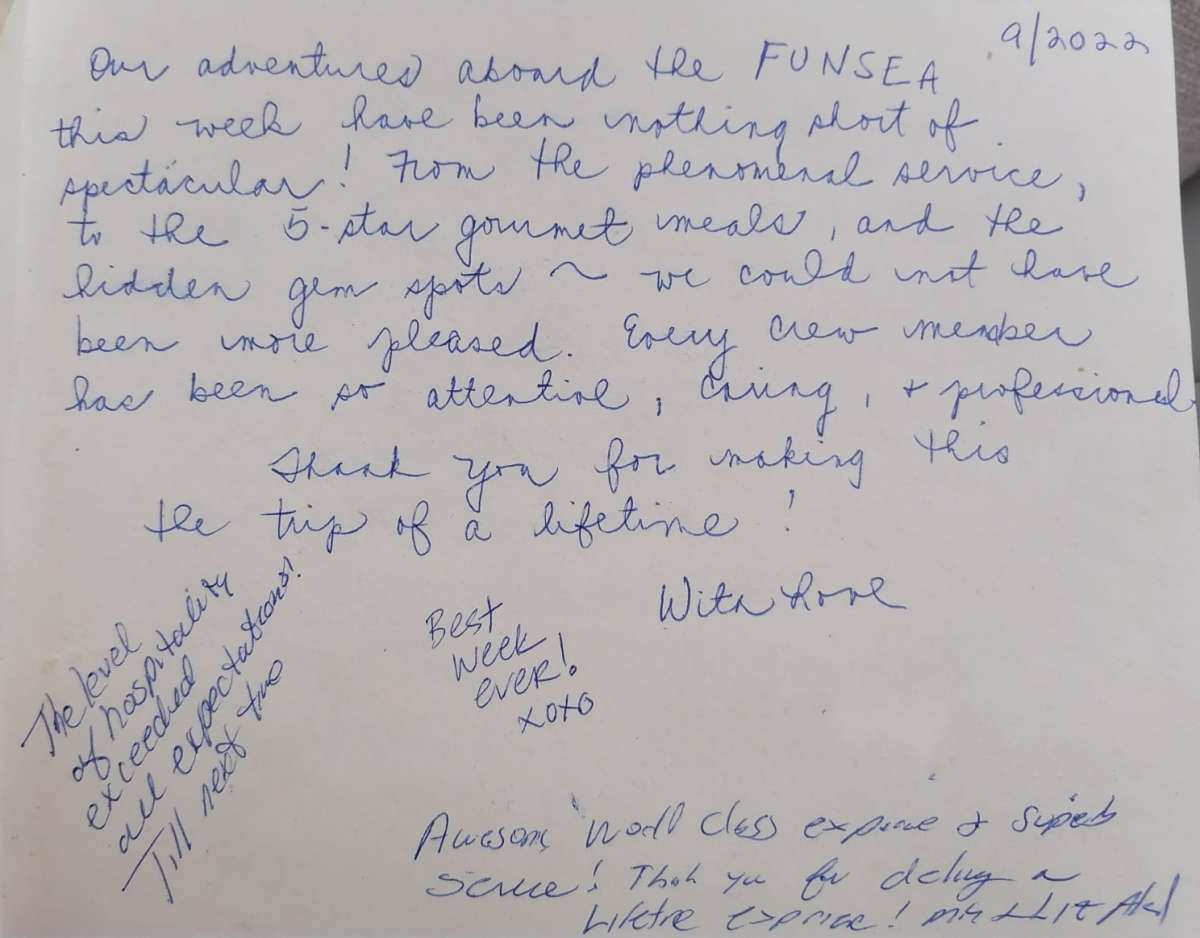 9/2022
Our adventures aboard the FUNSEA
this week have been nothing short of
spectacular! From the phenomenal service,
to the 5-star gourmet meals, and the
hidden gem spots ~ we could not have
been more pleased. Every crew member
has been so attentive, caring, + professional.
Thank you for making this
the trip of a lifetime!
With Love
The level
of hospitality
exceeded
all expectations!
Till next time
Best
week
ever!
xoxo
Awesome, World Class experience & superb
Service! Thank you for a
Lifetime experience!